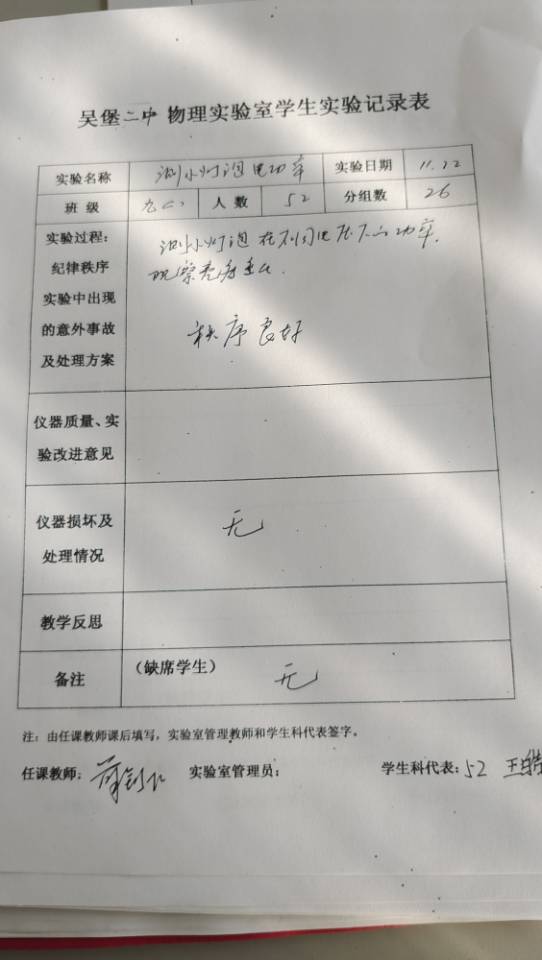 吴堡二中 物理实验室学生实验记录表
实验名称 测小灯泡电功率 实验日期 11.22
班 级 九(二) 人 数 52 分组数 26
实验过程:
纪律秩序
实验中出现
的意外事故
及处理方案
测小灯泡在不同电压下的功率,
观察亮度
秩序良好
仪器质量、实
验改进意见
仪器损坏及
处理情况
无
教学反思
备注
(缺席学生)
无
注:由任课教师课后填写,实验室管理教师和学生科代表签字。
任课教师: 实验室管理员: 学生科代表: 52 王